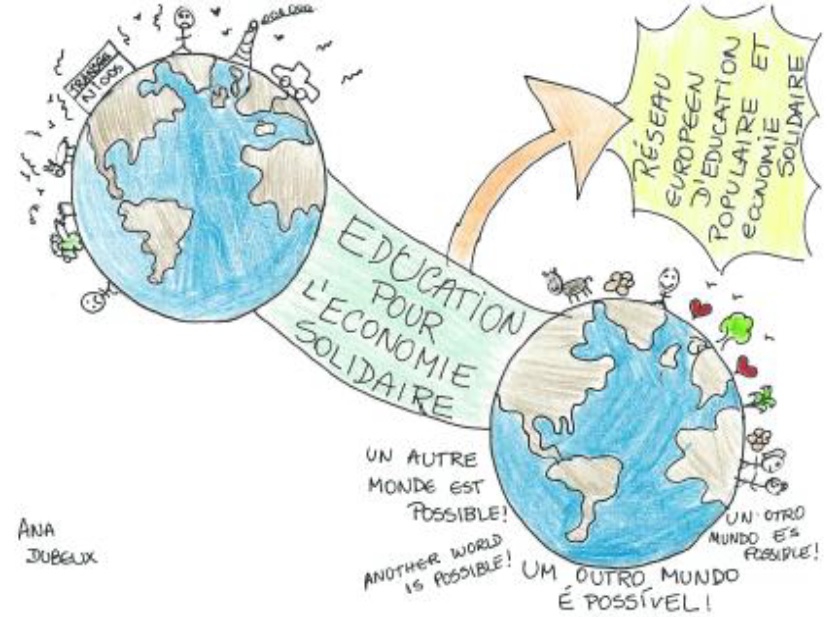 TRANSGÉ
NIQUES
EDUCATION
POUR
L'ECONOMIE
SOLIDAIRE
RÉSEAU
EUROPEEN
D'EDUCATION
POPULAIRE ET
ECONOMIE
SOLIDAIRE
UN AUTRE
MONDE EST
POSSIBLE!
ANOTHER WORLD
IS POSSIBLE!
UM OUTRO MUNDO
É POSSÍVEL!
UN OTRO
MUNDO ES
POSSIBLE!
ANA
DUBEUX